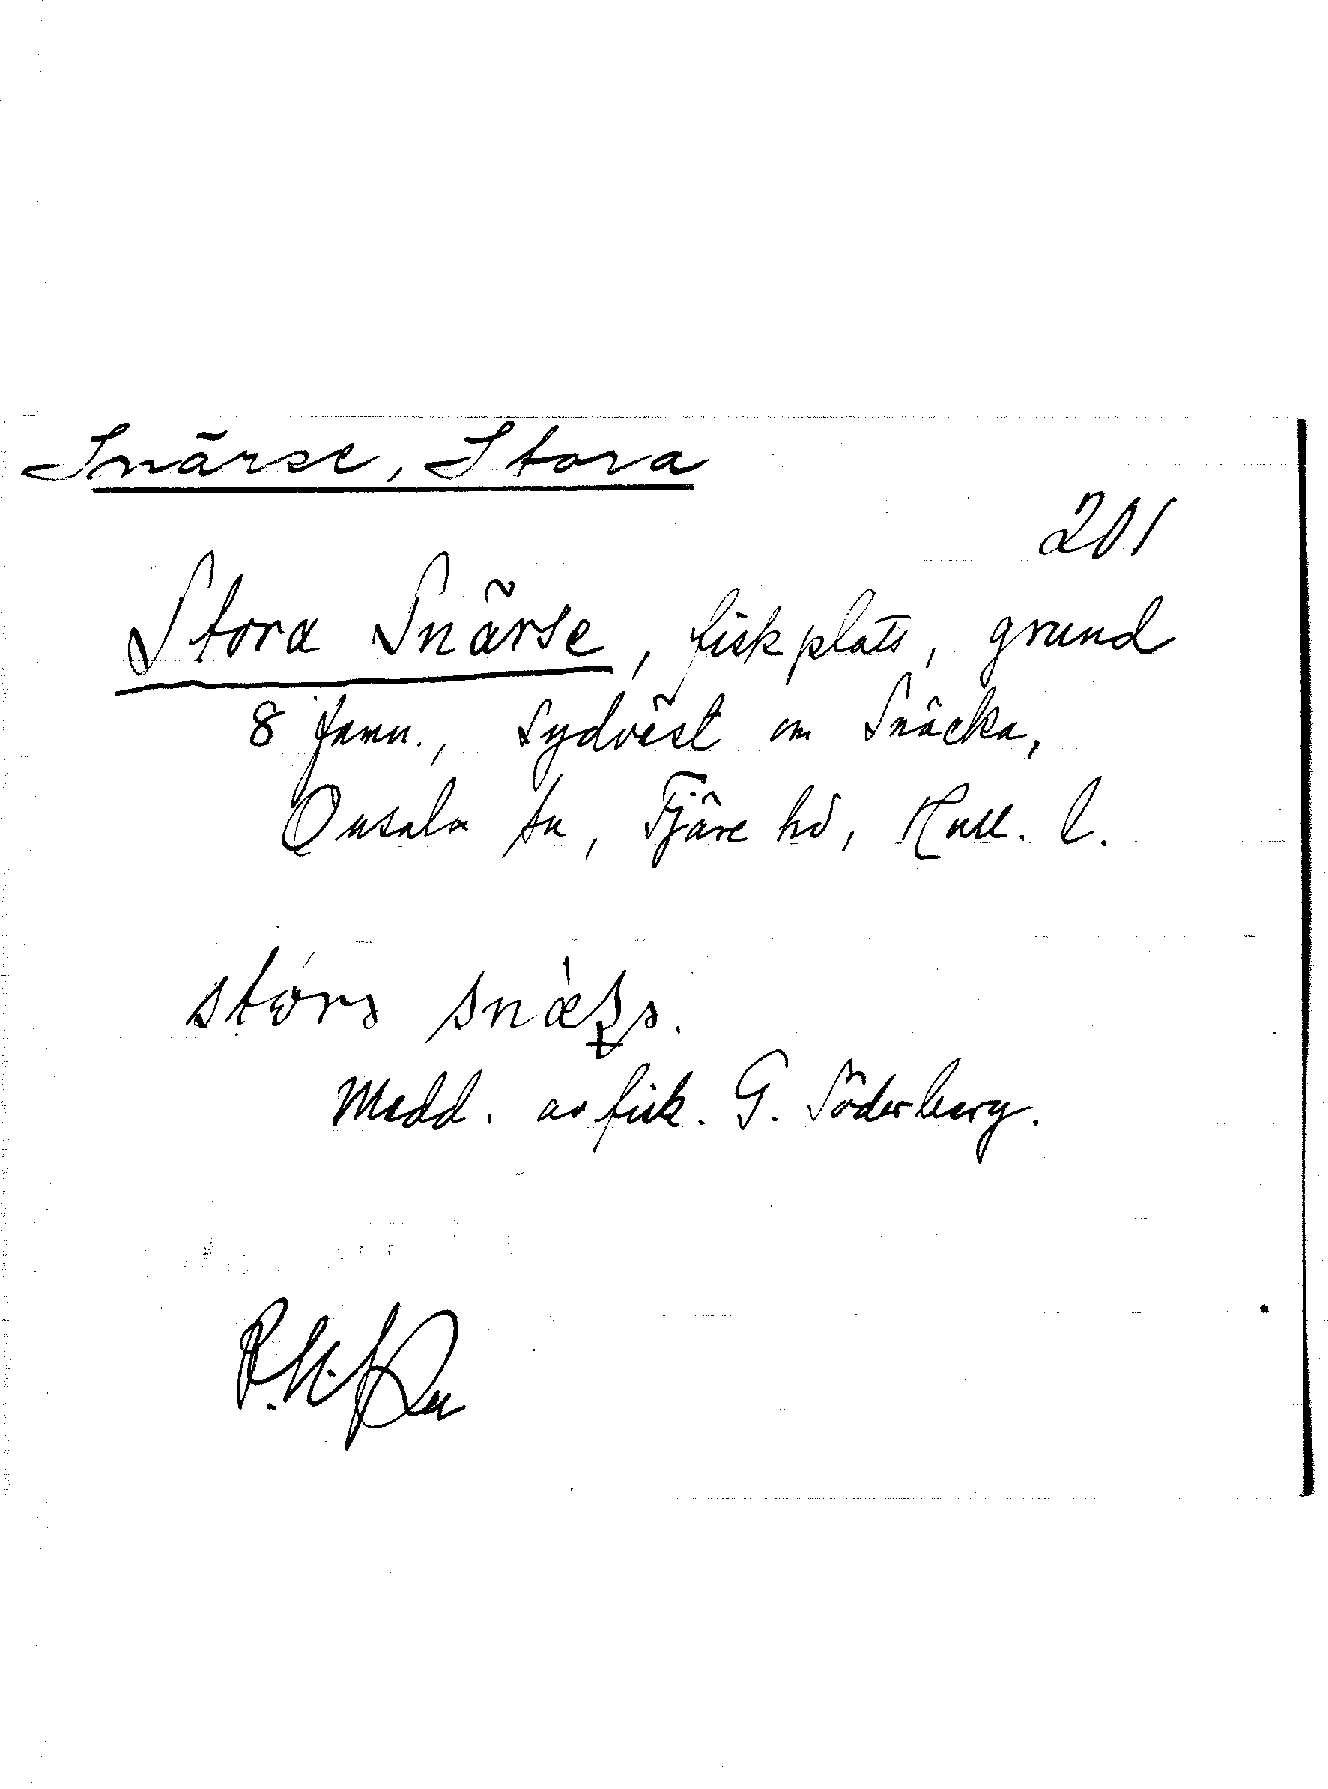 Snärse, Stora
201
Stora Snärse, fiskplats, grund
8 famn., sydväst om Snäcka,
Onsala sn, Fjäre hd, Hall. l.
Medd. av fisk. G. Söderberg.